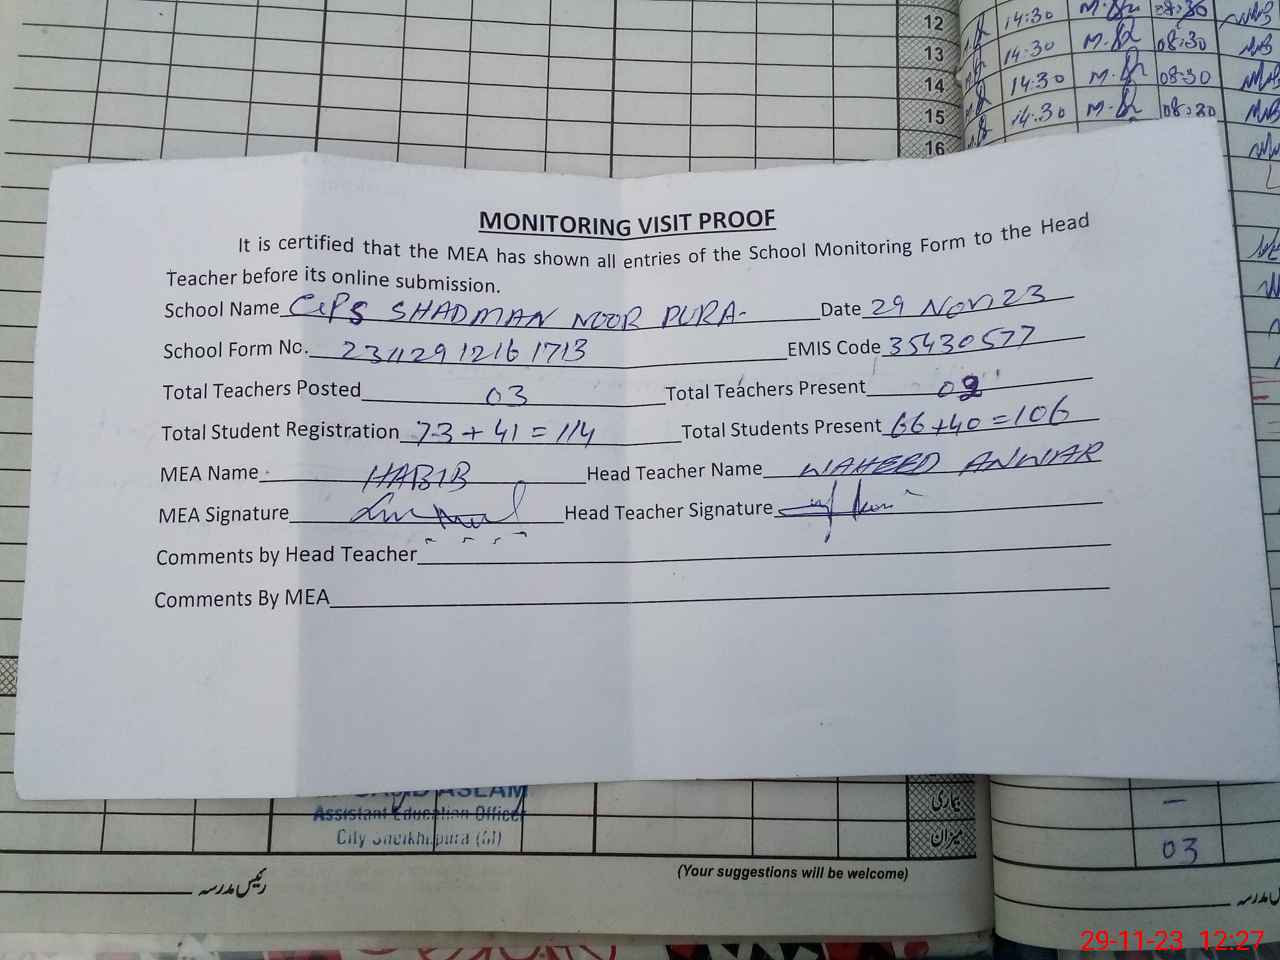 12 14:30 M.
13 14:30 M. 08:30
14 14:30 M. 08:30
15 14:30 M. 08:30
16
MONITORING VISIT PROOF
It is certified that the MEA has shown all entries of the School Monitoring Form to the Head
Teacher before its online submission.
School Name GPS SHADMAN NOOR PURA- Date 29 Nov 23
School Form No. 23112912161713 EMIS Code 35430577
Total Teachers Posted 03 Total Teachers Present 02
Total Student Registration 73 + 41 = 114 Total Students Present 66+40=106
MEA Name HABIB Head Teacher Name WAHEED ANWAR
MEA Signature Head Teacher Signature
Comments by Head Teacher
Comments By MEA
ASLAM
Assistant Education Officer
City Sheikhupura (M)
بیماری -
میزان 03
(Your suggestions will be welcome)
رئیس مدرسہ
29-11-23 12:27